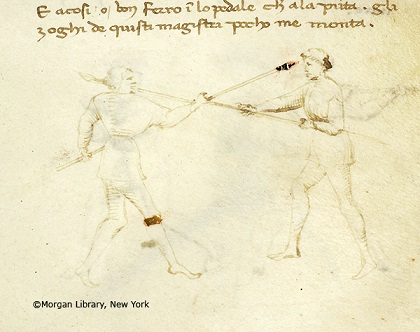 E acosi o bon ferro i lo pedale ch a la punta. gli
zoghi de quisti magistri pocho me monta.
©Morgan Library, New York